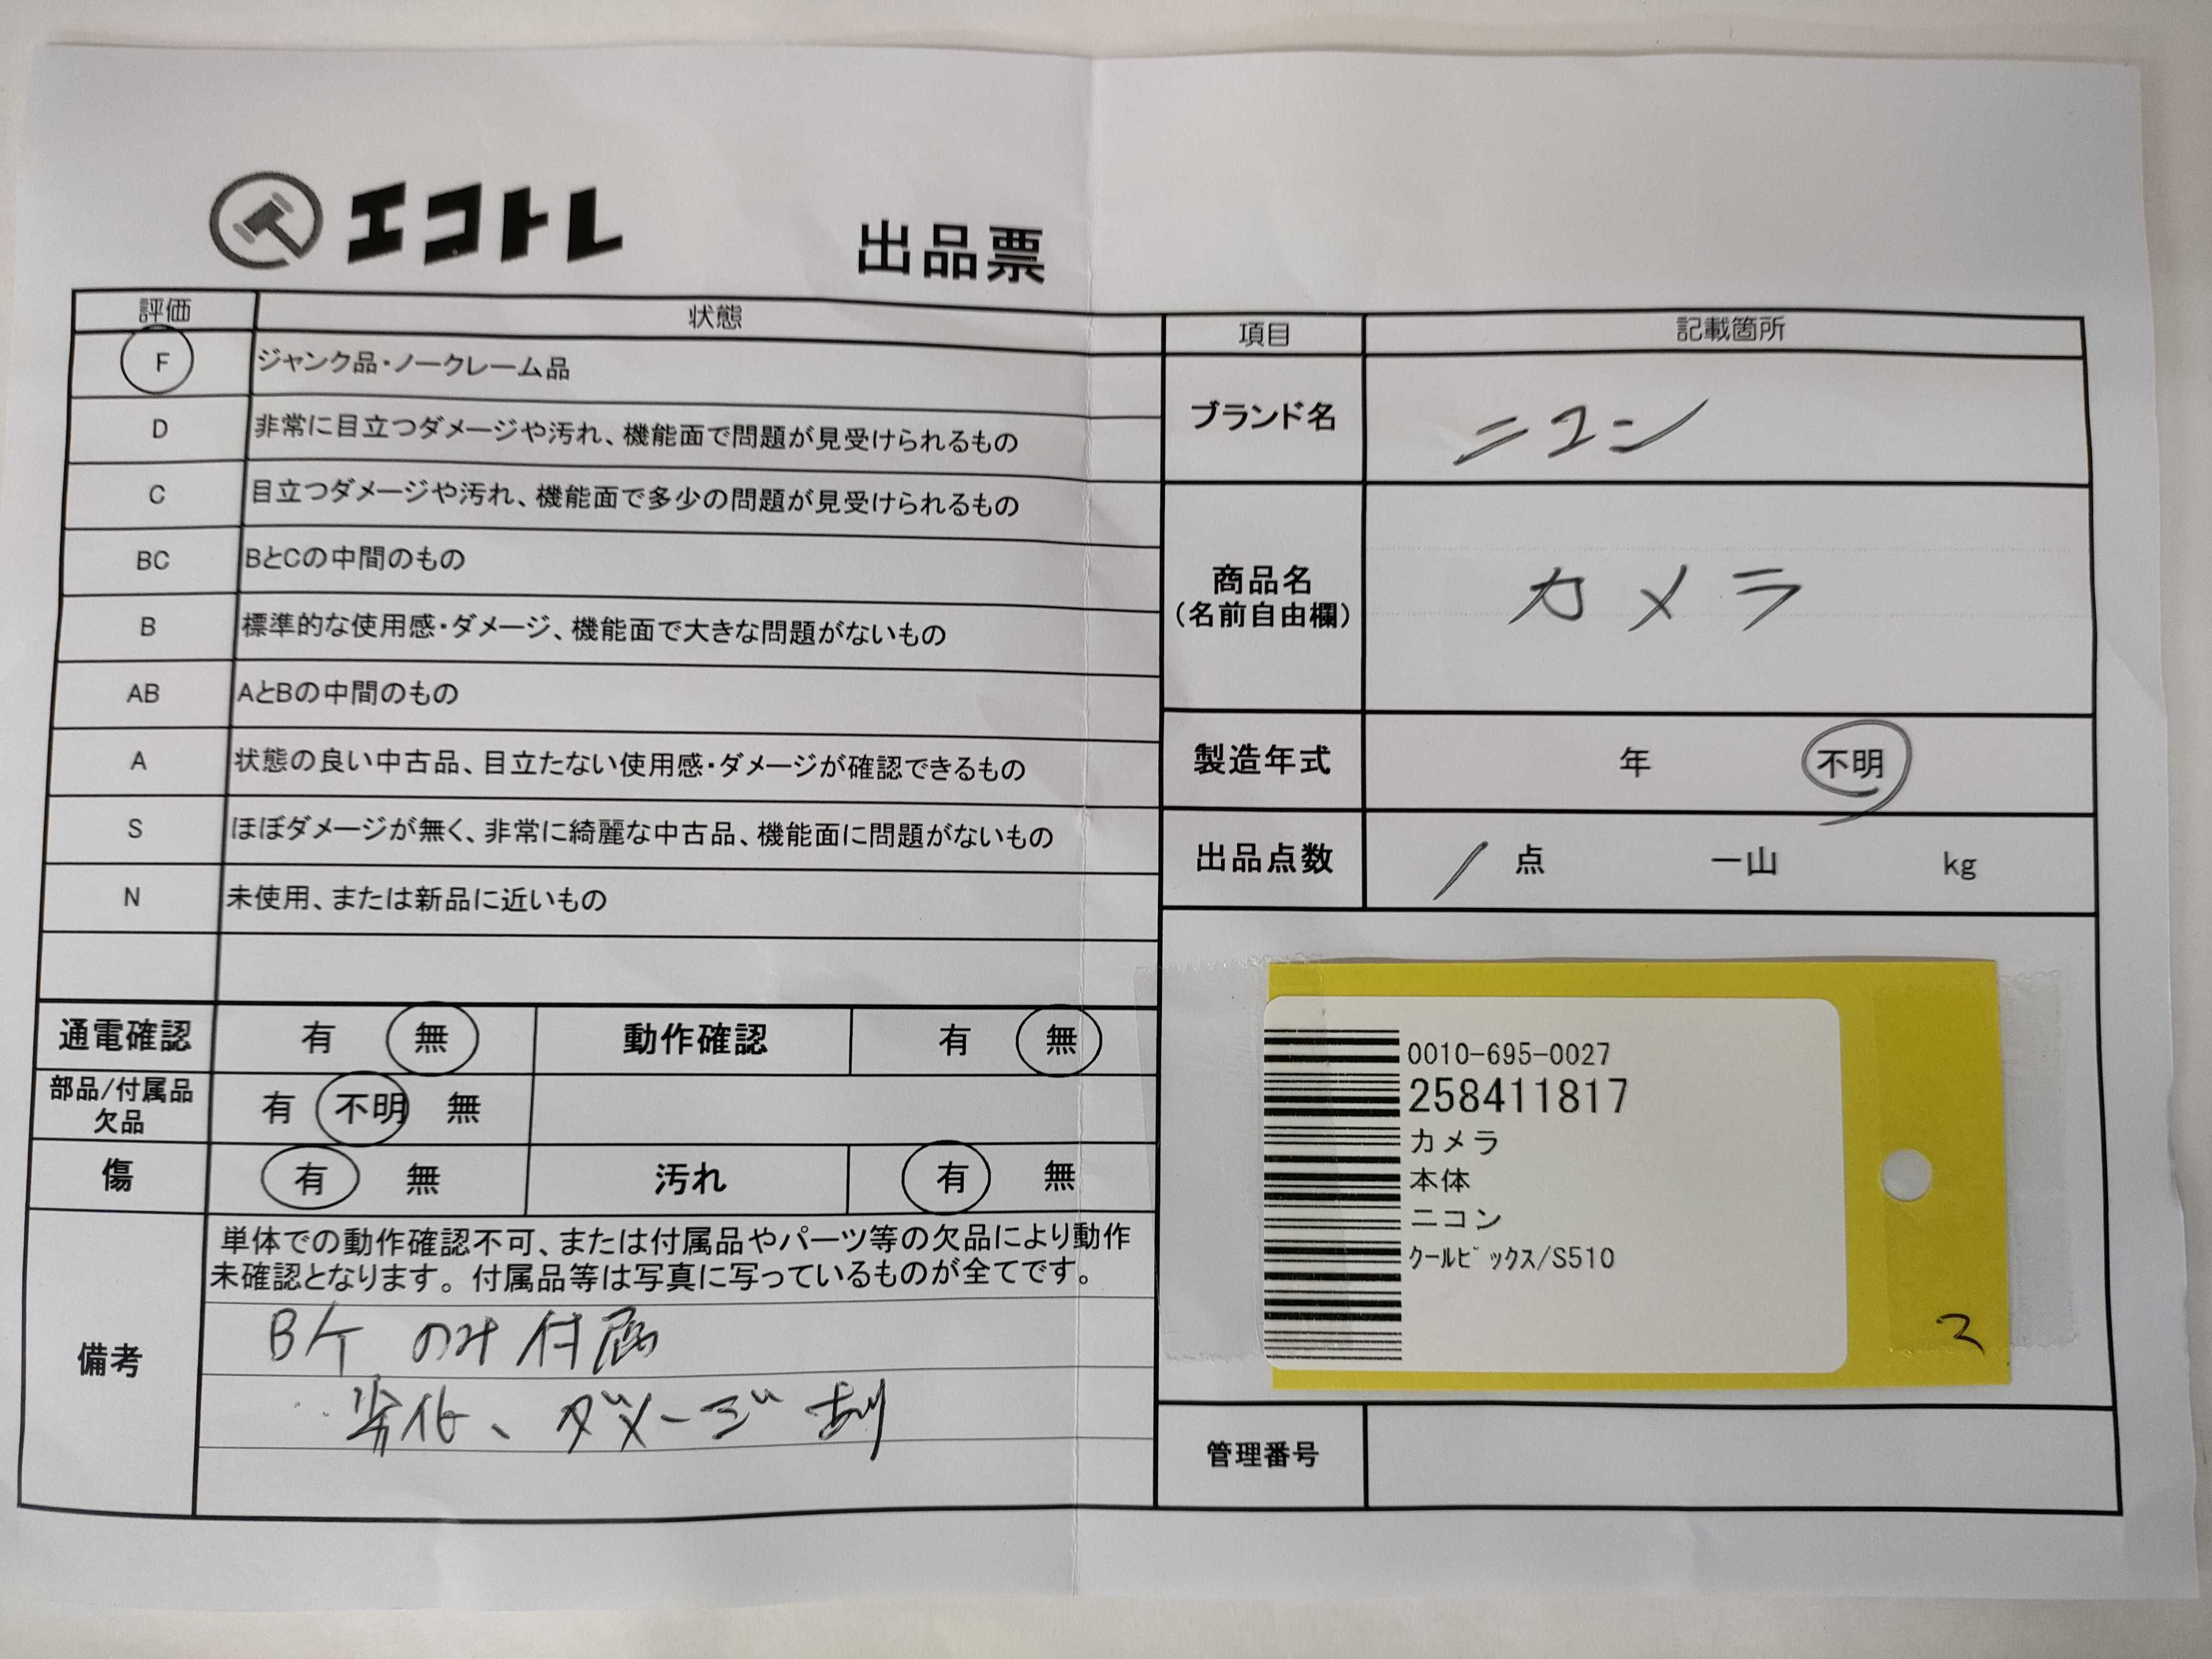 エコトレ
出品票
評価 状態
F ジャンク品・ノークレーム品
D 非常に目立つダメージや汚れ、機能面で問題が見受けられるもの
C 目立つダメージや汚れ、機能面で多少の問題が見受けられるもの
BC BとCの中間のもの
B 標準的な使用感・ダメージ、機能面で大きな問題がないもの
AB AとBの中間のもの
A 状態の良い中古品、目立たない使用感・ダメージが確認できるもの
S ほぼダメージが無く、非常に綺麗な中古品、機能面に問題がないもの
N 未使用、または新品に近いもの
通電確認 有 無 動作確認 有 無
部品/付属品
欠品
有 不明 無
傷 有 無 汚れ 有 無
備考
単体での動作確認不可、または付属品やパーツ等の欠品により動作
未確認となります。付属品等は写真に写っているものが全てです。
Bケ のみ付属
劣化、ダメージあり
項目 記載箇所
ブランド名 ニコン
商品名
(名前自由欄)
カメラ
製造年式 年 不明
出品点数 1 点 一山 kg
0010-695-0027
258411817
カメラ
本体
ニコン
ｸｰﾙﾋﾟｯｸｽ/S510
管理番号